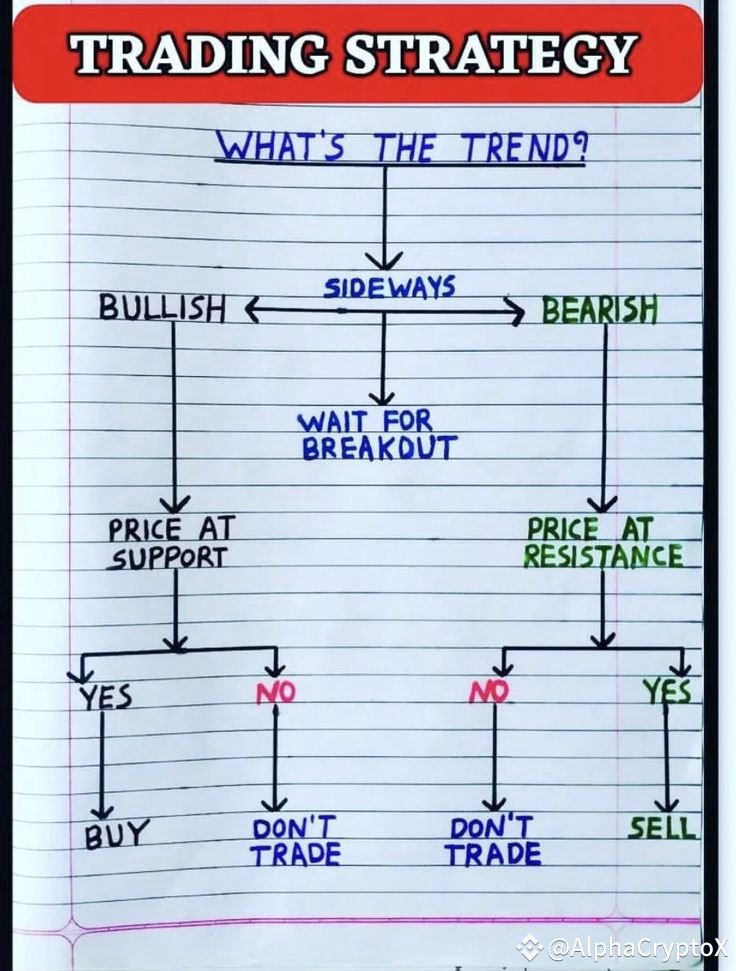 TRADING STRATEGY
WHAT'S THE TREND?
SIDEWAYS
BULLISH
BEARISH
WAIT FOR
BREAKOUT
PRICE AT
SUPPORT
PRICE AT
RESISTANCE
YES
NO
NO
YES
BUY
DON'T
TRADE
DON'T
TRADE
SELL
@AlphaCryptoX